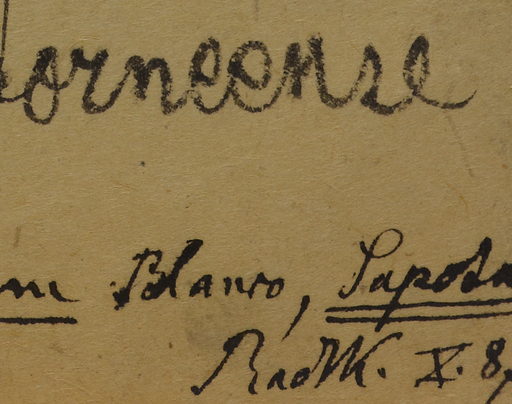 borneense
um Blanco, Sapota
Radlk. X. 8,